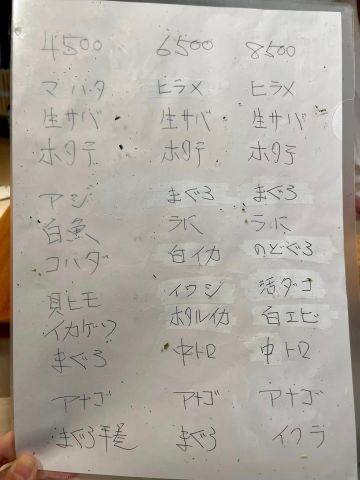 4500 6500 8500
マハタ ヒラメ ヒラメ
生サバ 生サバ 生サバ
ホタテ ホタテ ホタテ
アジ まぐろ まぐろ
白魚 うに うに
コハダ 白イカ のどぐろ
貝ヒモ イワシ 活ダコ
イカゲソ ホタルイカ 白エビ
まぐろ 中トロ 中トロ
アナゴ アナゴ アナゴ
まぐろ まぐろ イクラ